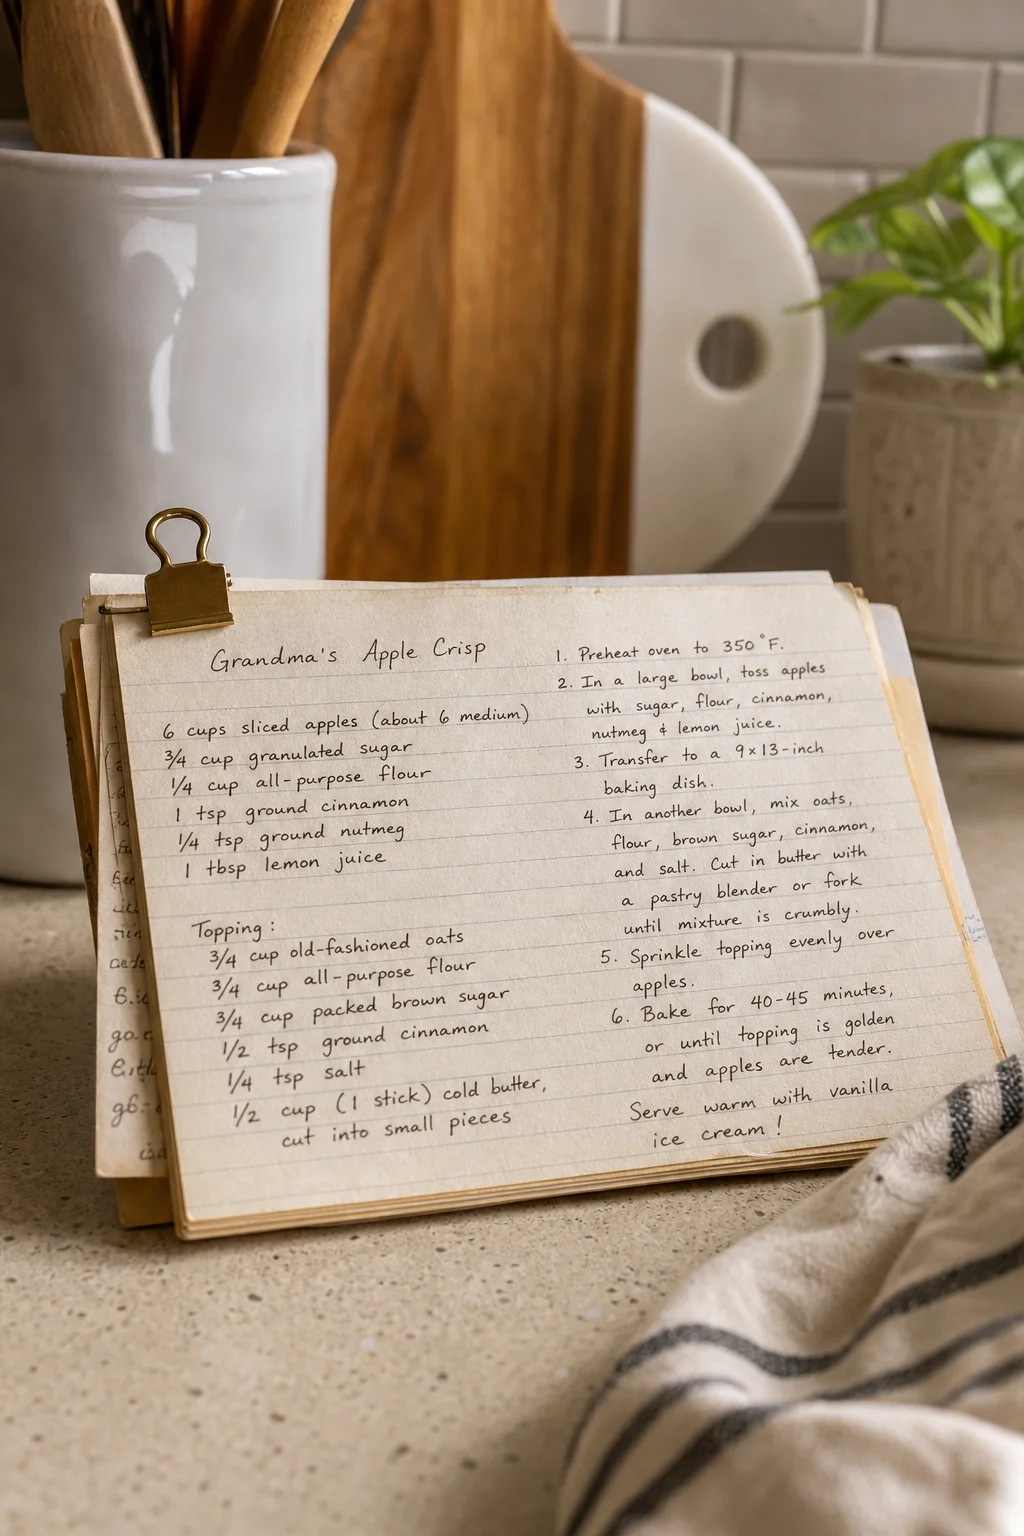 Grandma's Apple Crisp
6 cups sliced apples (about 6 medium)
3/4 cup granulated sugar
1/4 cup all-purpose flour
1 tsp ground cinnamon
1/4 tsp ground nutmeg
1 tbsp lemon juice
Topping:
3/4 cup old-fashioned oats
3/4 cup all-purpose flour
3/4 cup packed brown sugar
1/2 tsp ground cinnamon
1/4 tsp salt
1/2 cup (1 stick) cold butter,
cut into small pieces
1. Preheat oven to 350°F.
2. In a large bowl, toss apples
with sugar, flour, cinnamon,
nutmeg & lemon juice.
3. Transfer to a 9x13-inch
baking dish.
4. In another bowl, mix oats,
flour, brown sugar, cinnamon,
and salt. Cut in butter with
a pastry blender or fork
until mixture is crumbly.
5. Sprinkle topping evenly over
apples.
6. Bake for 40-45 minutes,
or until topping is golden
and apples are tender.
Serve warm with vanilla
ice cream!